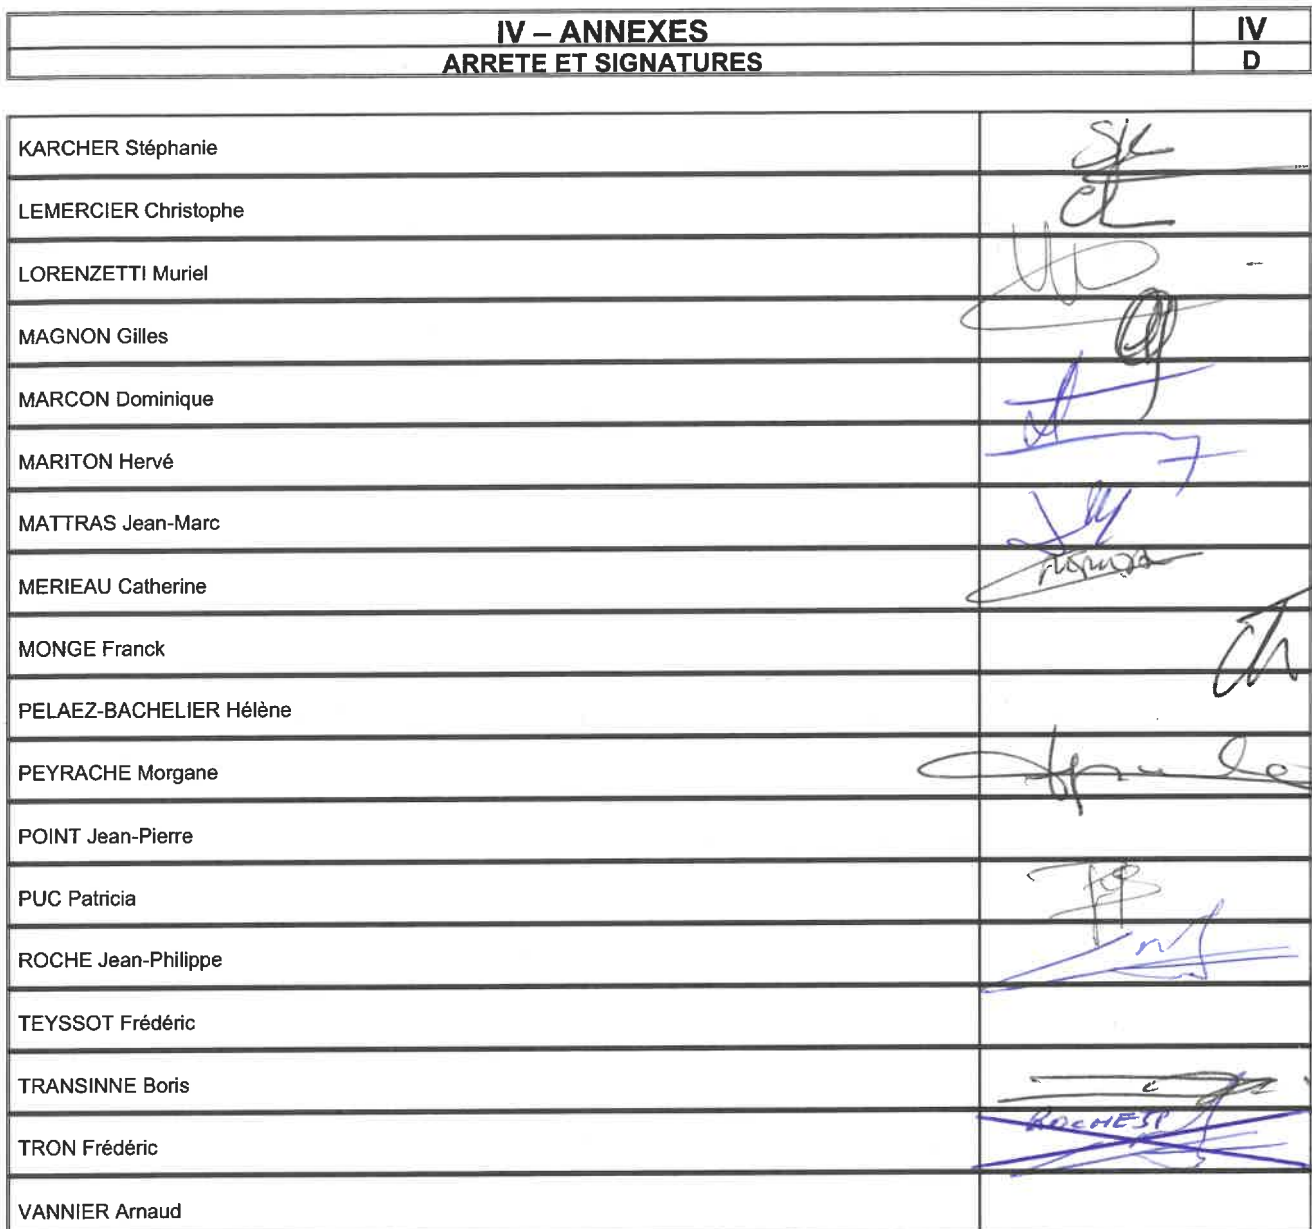 IV – ANNEXES
IV
ARRETE ET SIGNATURES
D
KARCHER Stéphanie
LEMERCIER Christophe
LORENZETTI Muriel
MAGNON Gilles
MARCON Dominique
MARITON Hervé
MATTRAS Jean-Marc
MERIEAU Catherine
MONGE Franck
PELAEZ-BACHELIER Hélène
PEYRACHE Morgane
POINT Jean-Pierre
PUC Patricia
ROCHE Jean-Philippe
TEYSSOT Frédéric
TRANSINNE Boris
TRON Frédéric
ROCHE JP
VANNIER Arnaud